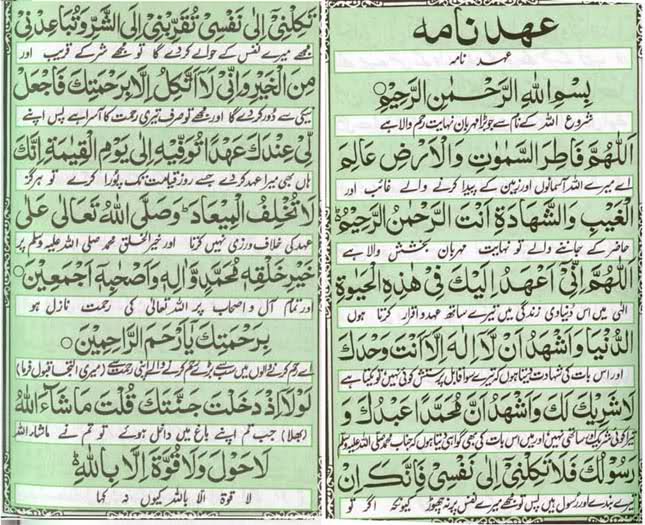 عہد نامہ
عہد نامہ
بِسْمِ اللّٰهِ الرَّحْمٰنِ الرَّحِيْمِ
شروع اللہ کے نام سے جو بڑا مہربان نہایت رحم والا ہے
اَللّٰهُمَّ فَاطِرَ السَّمٰوٰتِ وَالْاَرْضِ عَالِمَ
اے میرے اللہ آسمانوں اور زمین کے پیدا کرنے والے غائب اور
الْغَيْبِ وَالشَّهَادَةِ اَنْتَ الرَّحْمٰنُ الرَّحِيْمُ
حاضر کے جاننے والے تو نہایت مہربان بخشش والا ہے
اَللّٰهُمَّ اِنِّيْ اَعْهَدُ اِلَيْكَ فِيْ هٰذِهِ الْحَيٰوةِ
الٰہی میں اس دنیاوی زندگی میں تیرے ساتھ عہد و اقرار کرتا ہوں
الدُّنْيَا وَاَشْهَدُ اَنْ لَّا اِلٰهَ اِلَّا اَنْتَ وَحْدَكَ
اور اس بات کی شہادت دیتا ہوں کہ تیرے سوا قابل پرستش کوئی نہیں تو یکتا ہے
لَا شَرِيْكَ لَكَ وَاَشْهَدُ اَنَّ مُحَمَّدًا عَبْدُكَ وَ
تیرا کوئی شریک و ساتھی نہیں اور میں اس بات کی بھی گواہی دیتا ہوں کہ جناب محمد صلی اللہ علیہ وسلم
رَسُوْلُكَ فَلَا تَكِلْنِيْ اِلٰى نَفْسِيْ فَاِنَّكَ اِنْ
تیرے بندے اور رسول ہیں پس تو مجھے میرے نفس پر نہ چھوڑ کیونکہ اگر تو
تَكِلْنِيْ اِلٰى نَفْسِيْ تُقَرِّبْنِيْ اِلَى الشَّرِّ وَتُبَاعِدْنِيْ
مجھے میرے نفس کے حوالے کر دے گا تو مجھے شر کے قریب اور
مِنَ الْخَيْرِ وَاِنِّيْ لَا اَتَّكِلُ اِلَّا بِرَحْمَتِكَ فَاجْعَلْ
نیکی سے دور کر دے گا اور مجھے تو صرف تیری رحمت کا آسرا ہے پس اپنے
لِّيْ عِنْدَكَ عَهْدًا تُوَفِّيْهِ اِلٰى يَوْمِ الْقِيٰمَةِ اِنَّكَ
ہاں بھی میرا عہد کر دے جسے روز قیامت تک پورا کرے تو ہرگز
لَا تُخْلِفُ الْمِيْعَادَ وَصَلَّى اللّٰهُ تَعَالٰى عَلٰى
عہد کی خلاف ورزی نہیں کرتا اور خیر الخلق محمد صلی اللہ علیہ وسلم پر
خَيْرِ خَلْقِهٖ مُحَمَّدٍ وَّاٰلِهٖ وَاَصْحٰبِهٖ اَجْمَعِيْنَ
اور تمام آل و اصحاب پر اللہ تعالیٰ کی رحمت نازل ہو
بِرَحْمَتِكَ يَا اَرْحَمَ الرَّاحِمِيْنَ
اے رحم کرنے والوں میں سب سے بڑے رحم کرنے والے اپنی رحمت سے (میری التجا قبول فرما)
لَوْلَا اِذْ دَخَلْتَ جَنَّتَكَ قُلْتَ مَا شَآءَ اللّٰهُ
(بھلا) جب تم اپنے باغ میں داخل ہوئے تو تم نے ماشاء اللہ
لَا حَوْلَ وَلَا قُوَّةَ اِلَّا بِاللّٰهِ
لا قوۃ الا باللہ کیوں نہ کہا